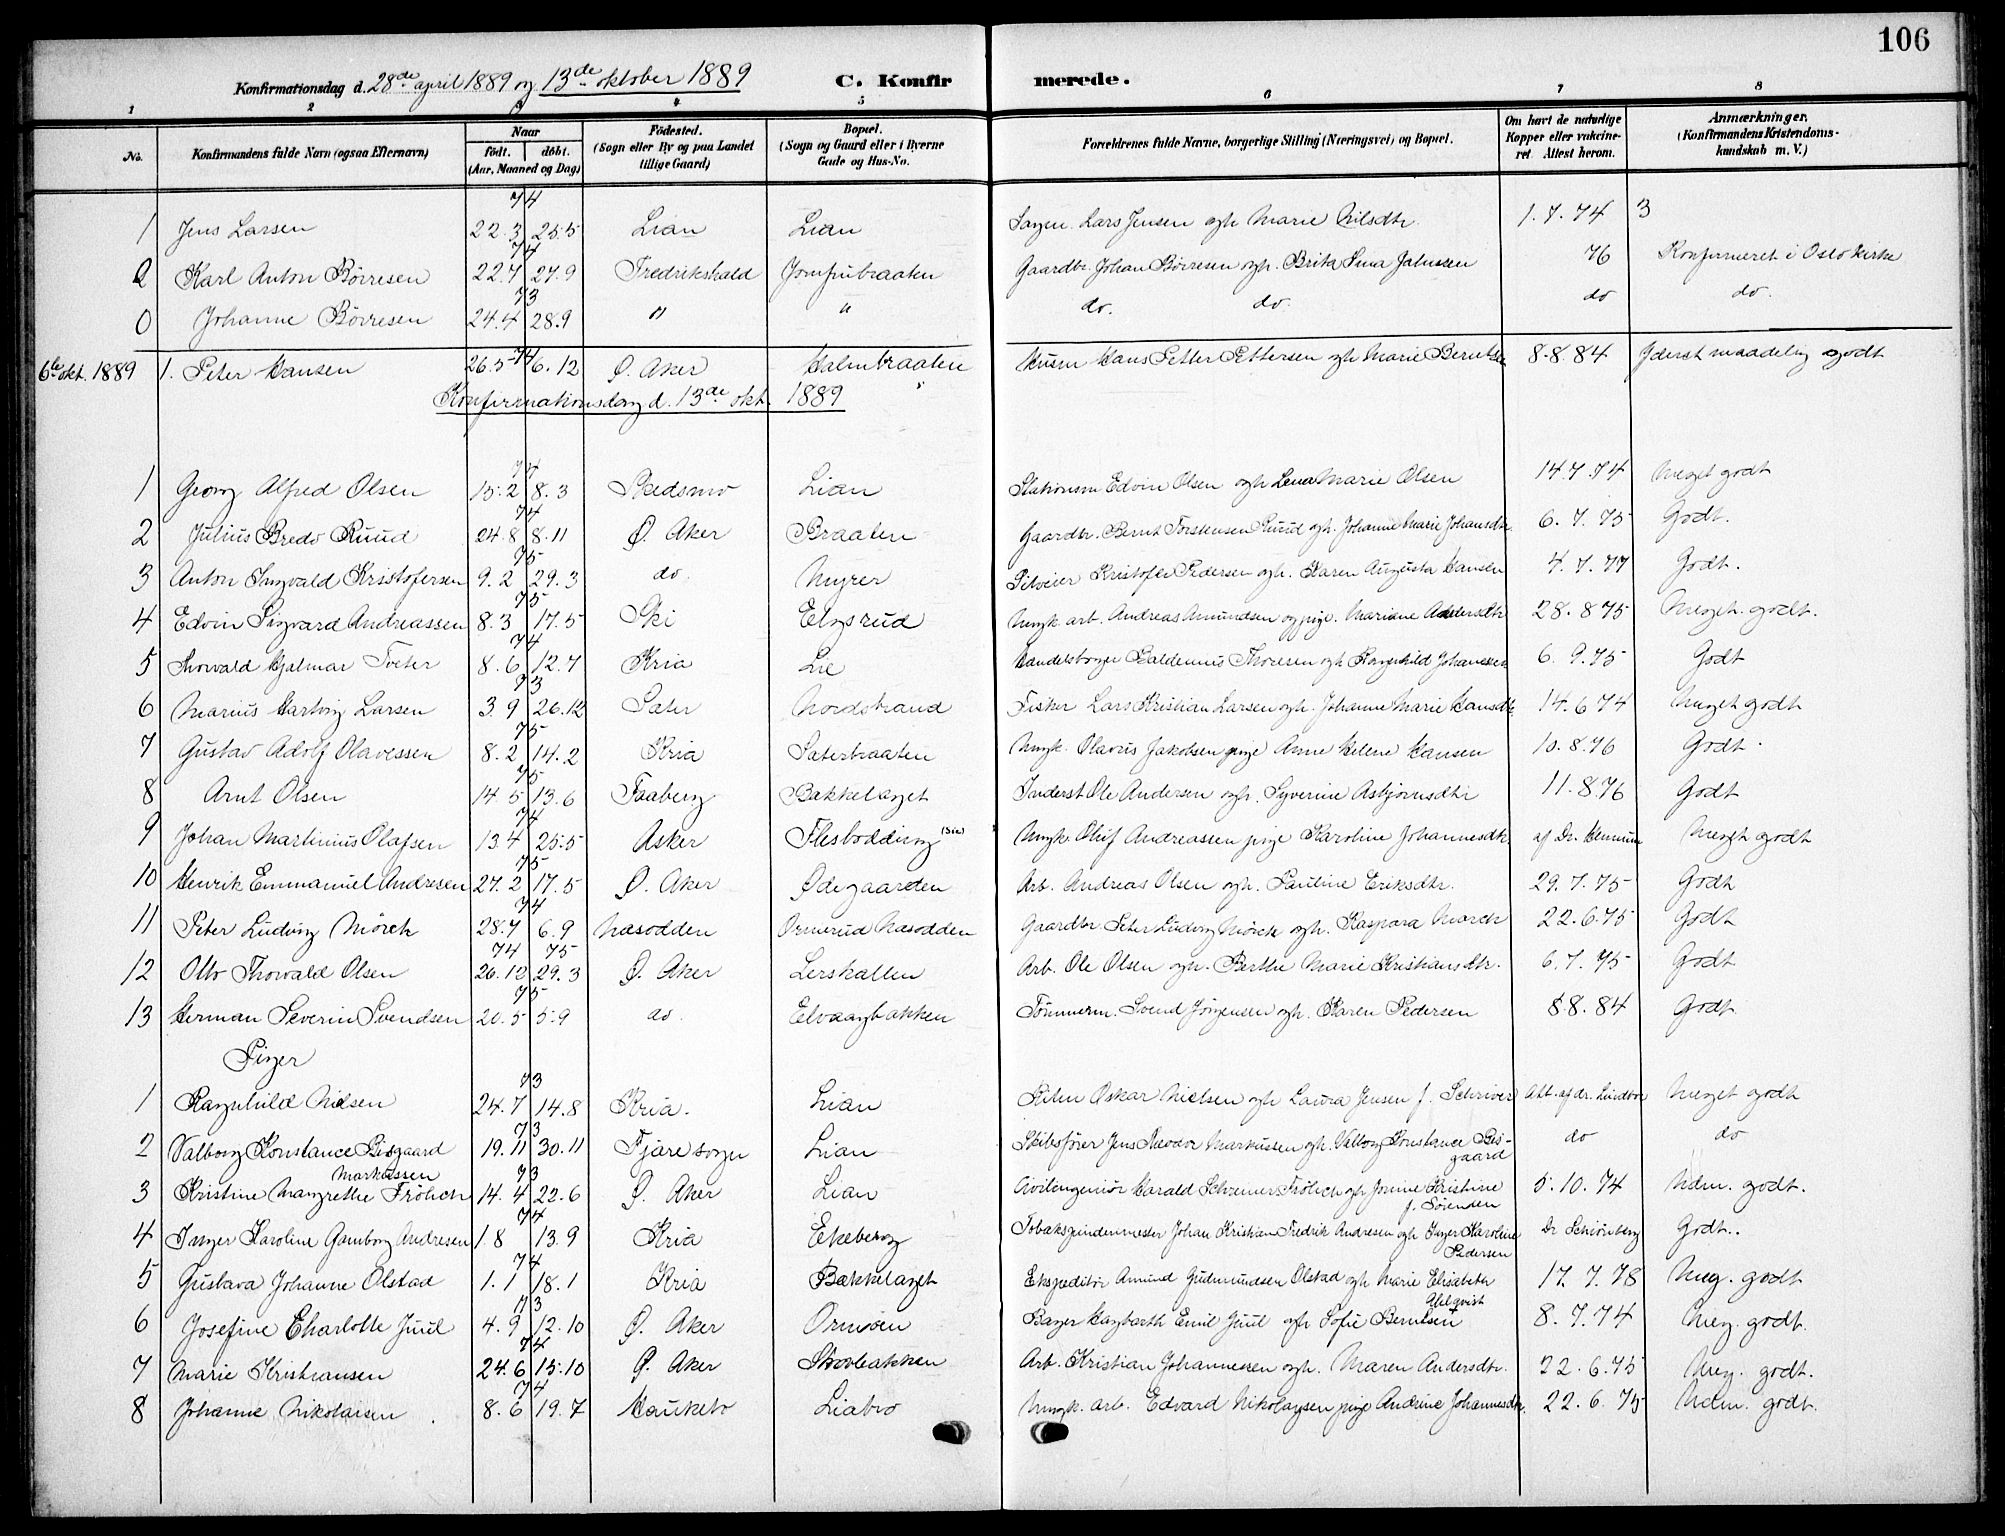 106
Konfirmationsdag d. 28de april 1889 og 13de oktober 1889 C. Konfirmerede.
1 2 3 4 5 6 7 8
No. Konfirmandens fulde Navn (ogsaa Efternavn) Naar født. døbt. (Aar, Maaned og Dag) Fødested. (Sogn eller By og paa Landet tillige Gaard) Bopæl. (Sogn og Gaard eller i Byerne Gade og Hus-No. Forældrenes fulde Navne, borgerlige Stilling (Næringsvei) og Bopæl. Om havt de naturlige Kopper eller vaccineret Attest herom. Anmærkninger. (Konfirmandens Kristendomskundskab m. V.)
74
1 Jens Larsen 22.3 25.5 Lian Lian Lars Jensen ogh Marie Nilsdtr. 1.7.74 3
74
2 Karl Anton Börresen 22.7 27.9 Fredrikshald Jomfrubraaten Gaardbr. Johan Börresen ogh. Brita Lina 76 Konfirmeret i Oslo kirke
73
0 Johanne Börresen 24.4 28.9 " " do. do. do do.
6te okt. 1889 1. Peter Hansen 26.5 74 6.12 Ø. Aker Halmbraaten Husm Hans Petter Pettersen ogh Marie Berntsen 8.8.84 Yderst maadelig godt
Konfirmationsdag d. 13de okt. 1889
74
1 Georg Alfred Olsen 15.2 8.3 Skedsmo Lian Stationsm Edvin Olsen ogh Lena Marie Olsen 14.7.74 Meget godt
74
2 Julius Bredo Ruud 24.8 8.11 Ø. Aker Braaten Gaardbr. Bernt Torstensen Ruud ogh. Johanne Marie Johansdtr 6.7.75 Godt.
75
3 Anton Ingvald Kristofersen 9.2 29.3 do. Myrer Kristofer Pedersen ogh. Karen Augusta Hansen 4.7.77 Godt.
75
4 Edvin Sigvard Andreassen 8.3 17.5 Ski Elgsrud Ungk. arb. Andreas Amundsen og pige. Mariane Andersdtr 28.8 75 Meget godt.
74
5 Thorvald Hjalmar Tveter 8.6 12.7 Kria Lie Handelsborger Baldenius Thoresen ogh Ragnhild Johannesen 6.9.75 Godt
73
6 Marius Hartvig Larsen 3.9 26.12 Sater Nordstrand Fisker Lars Kristian Larsen ogh. Johanne Marie Hansdtr. 14.6 74 Meget godt
75
7 Gustav Adolf Olavessen 8.2 14.2 Kria Saterbraaten Ungk. Olavus Jakobsen pige Anne Helene Hansen 10.8.76 Godt.
75
8 Arnt Olsen 14.5 13.6 Faaberg Bakkelaget Inderst Ole Andersen ogh. Syverine Asbjörnsdtr 11.8.76 Godt
74
9 Johan Martinius Olafsen 13.4 25.5 Asker Flesbodding (Sie) Ungk. Oluf Andreassen pige Karoline Johannesdtr af Dr. Meget godt
75
10 Henrik Emmanuel Andresen 27.2 17.5 Ø. Aker Ødegaarden Arb. Andreas Olsen ogh. Pauline Eriksdtr. 29.7.75 Godt
74
11 Peter Ludvig Mörch 28.7 6.9 Næsodden Ormerud Næsodden Gaardbr. Peter Ludvig Mörch ogh. Kaspara Mörch 22.6.75 Godt
74 75
12 Otto Thorvald Olsen 26.12 29.3 Ø. Aker Lerskallen Arb. Ole Olsen ogh. Berthe Marie Kristiansdtr. 6.7.75 Godt
75
13 Herman Severin Svendsen 20.5 5.9 do. Elvaagbakken Tömmerm. Svend Jörgensen ogh. Karen Pedersen 8.8.84 Godt
Piger
73
1 Ragnhild Nilsen 24.7 14.8 Kria. Lian Oskar Nielsen ogh Laura Jensen f. Schriver Att. af dr. Meget godt
73
2 Valborg Konstance Bisgaard 19.11 30.11 Fjære sogn Lian Skibsfører Jens Theodor Markussen ogh. Valborg Konstance Bis- do do
Markussen gaard
73
3 Kristine Margrethe Frölich 14.4 22.6 Ø. Aker Lian Civilingeniör Harald Schreiner Frölich ogh Jonine Kristine 5.10.74 Udm. godt.
f. Sörensen
74
4 Inger Karoline Gamborg Andresen 1.8 13.9 Kria Ekeberg Tobakspindemester Johan Kristian Fredrik Andresen ogh Inger Karoline Dr Schiönberg Godt..
Pedersen
74
5 Gustava Johanne Olstad 1.1 18.1 Kria Bækkelaget Ekspeditör Amund Gudmundsen Olstad ogh Marie Elisabeth 17.7.78 Meg. godt
Ahlqvist
73
6 Josefine Charlotte Juul 4.9 12.10 Ø. Aker Ormöen Bager Hagbarth Emil Juul ogh Sofie Berntsen 8.7.74 Meg. godt.
74
7 Marie Kristiansen 24.6 15.10 Ø. Aker Skovbakken Arb. Kristian Johannessen ogh. Maren Andersdtr. 22.6.75 Meg. godt.
74
8 Johanne Nikolaisen 8.6 19.7 Hauketo Liabro Ungk. arb. Edvard Nikolaysen pige Andrine Johannesdtr. 22.6.75 Udm. godt.